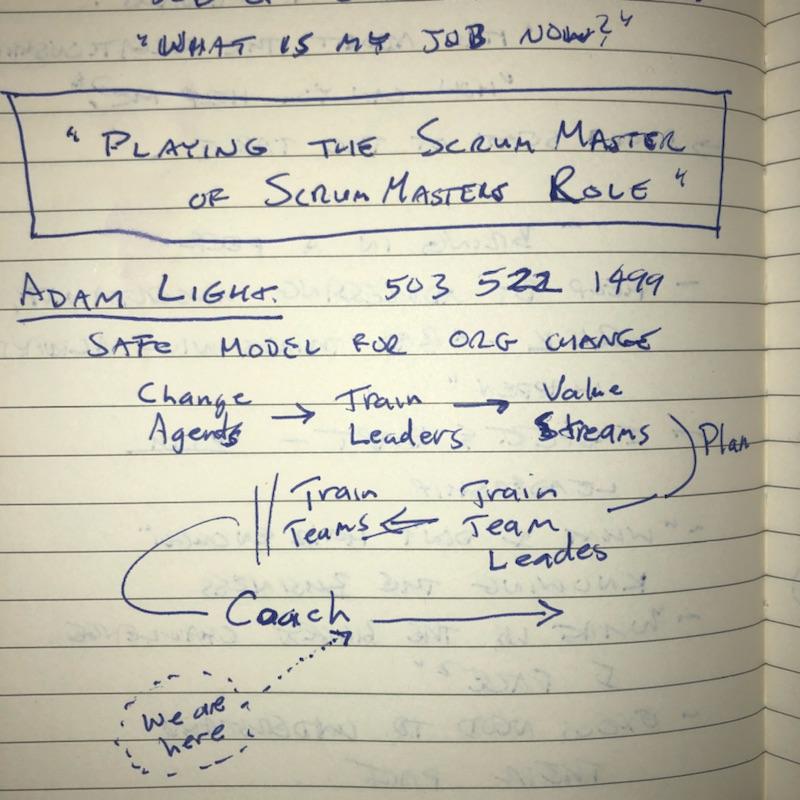 "WHAT IS MY JOB NOW?"
"PLAYING THE SCRUM MASTER
OF SCRUM MASTERS ROLE"
ADAM LIGHT. 503 522 1499
SAFE MODEL FOR ORG CHANGE
Change Agents → Train Leaders → Value Streams
Plan
Train Teams ← Train Team Leades
Coach →
We are
here